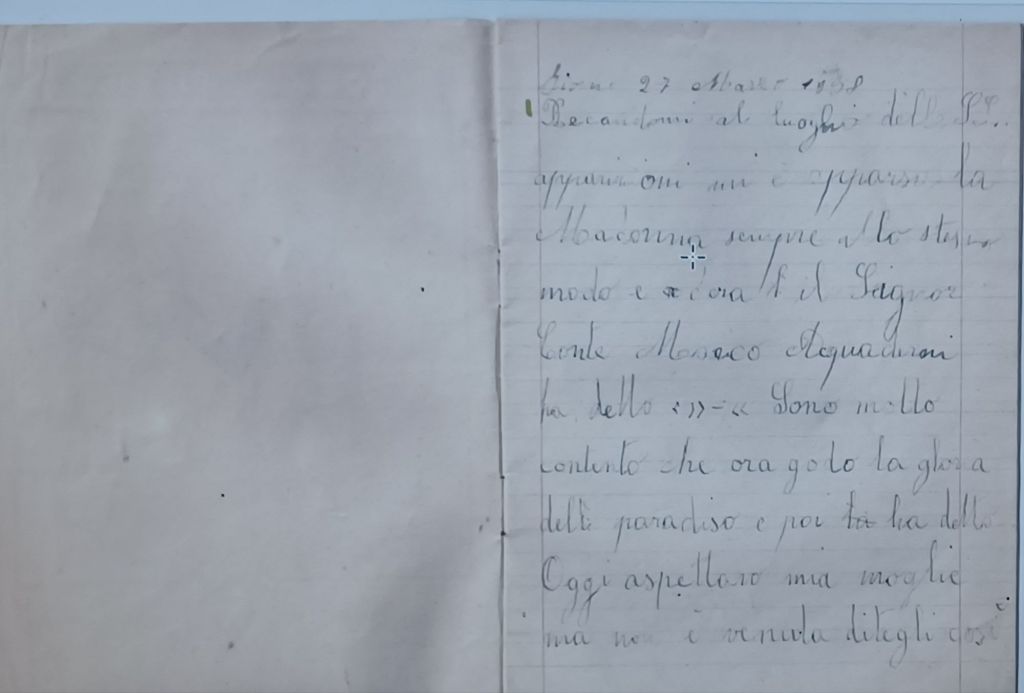 27 Marzo 1938
Recandomi al luoghi delle SS.
apparizioni mi è apparsa la
Madonna sempre allo stesso
modo e c'era il Signor
Conte Acquaderni
ha detto «»-« Sono molto
contento che ora godo la gloria
delle paradiso e poi ha detto
Oggi aspettavo mia moglie
ma non è venuta ditegli così